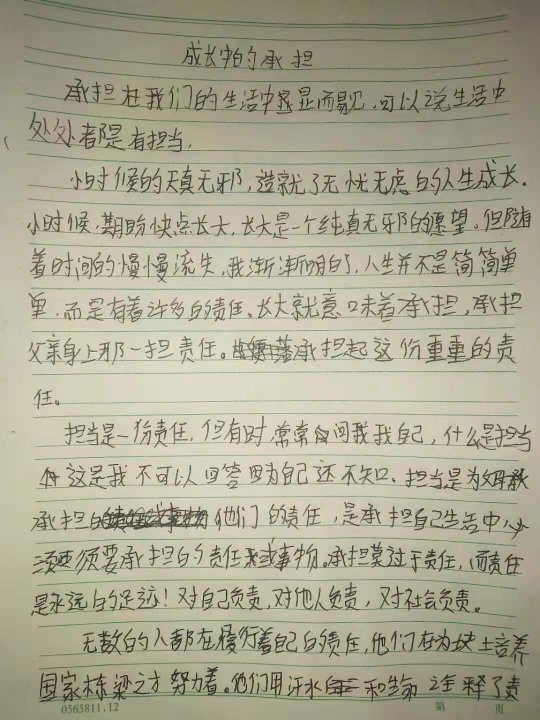 成长中的承担
承担在我们的生活中显显而易见，可以说生活中
处处都是有担当，
小时候的天真无邪，造就了无忧无虑的人生成长。
小时候，期盼快点长大，长大是一个纯真无邪的愿望。但随
着时间的慢慢流失，我渐渐明白了，人生并不是简简单
单，而是有着许多的责任。长大就意味着承担，承担
父亲身上那一担责任。承担起这份重重的责
任。
担当是一份责任，但有时，常常自问我我自己，什么是担当
这是我不可以回答因为自己还不知。担当是为父母承
承担他们的责任，是承担自己生活中必
须要承担的责任或事物。承担莫过于责任，而责任
是永远的足迹！对自己负责，对他人负责，对社会负责。
无数的人都在履行着自己的责任，他们在为块土培养
国家栋梁之才努力着。他们用汗水和生命诠释了责
0565811.12 第 页